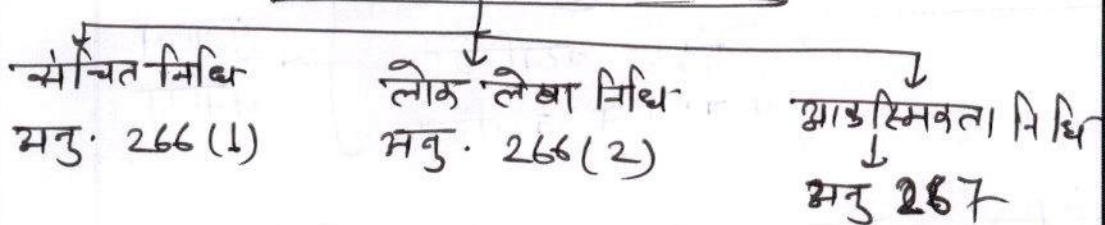 संचित निधि
अनु. 266(1)
लोक लेखा निधि
अनु. 266(2)
आकस्मिकता निधि
अनु 267